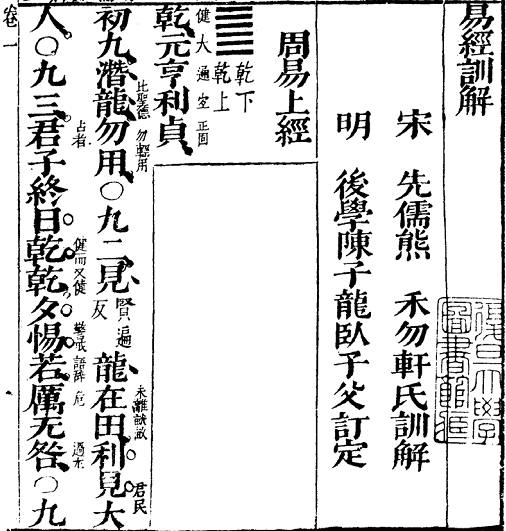 易經訓解
宋 先儒熊 禾勿軒氏訓解
明 後學陳子龍臥子父訂定
周易上經
乾下
乾上
乾元亨利貞
健 大 通 宜 正固
初九潛龍勿用〇九二見龍在田利見大
比聖德 勿輕用 賢遍反 未離 君民
人〇九三君子終日乾乾夕惕若厲无咎〇九
占者 健而又健 警戒 語辭 危 過尤
卷一
復旦大學
圖書館藏